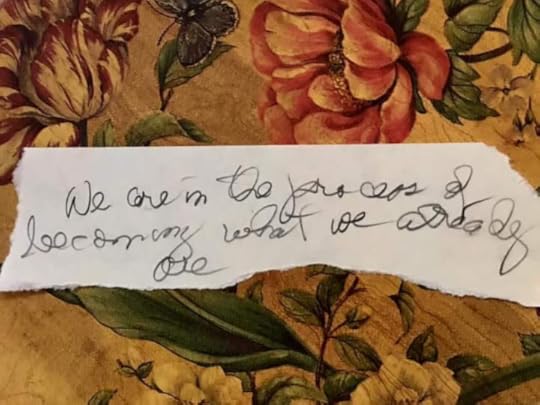 We are in the process of
becoming what we already
are